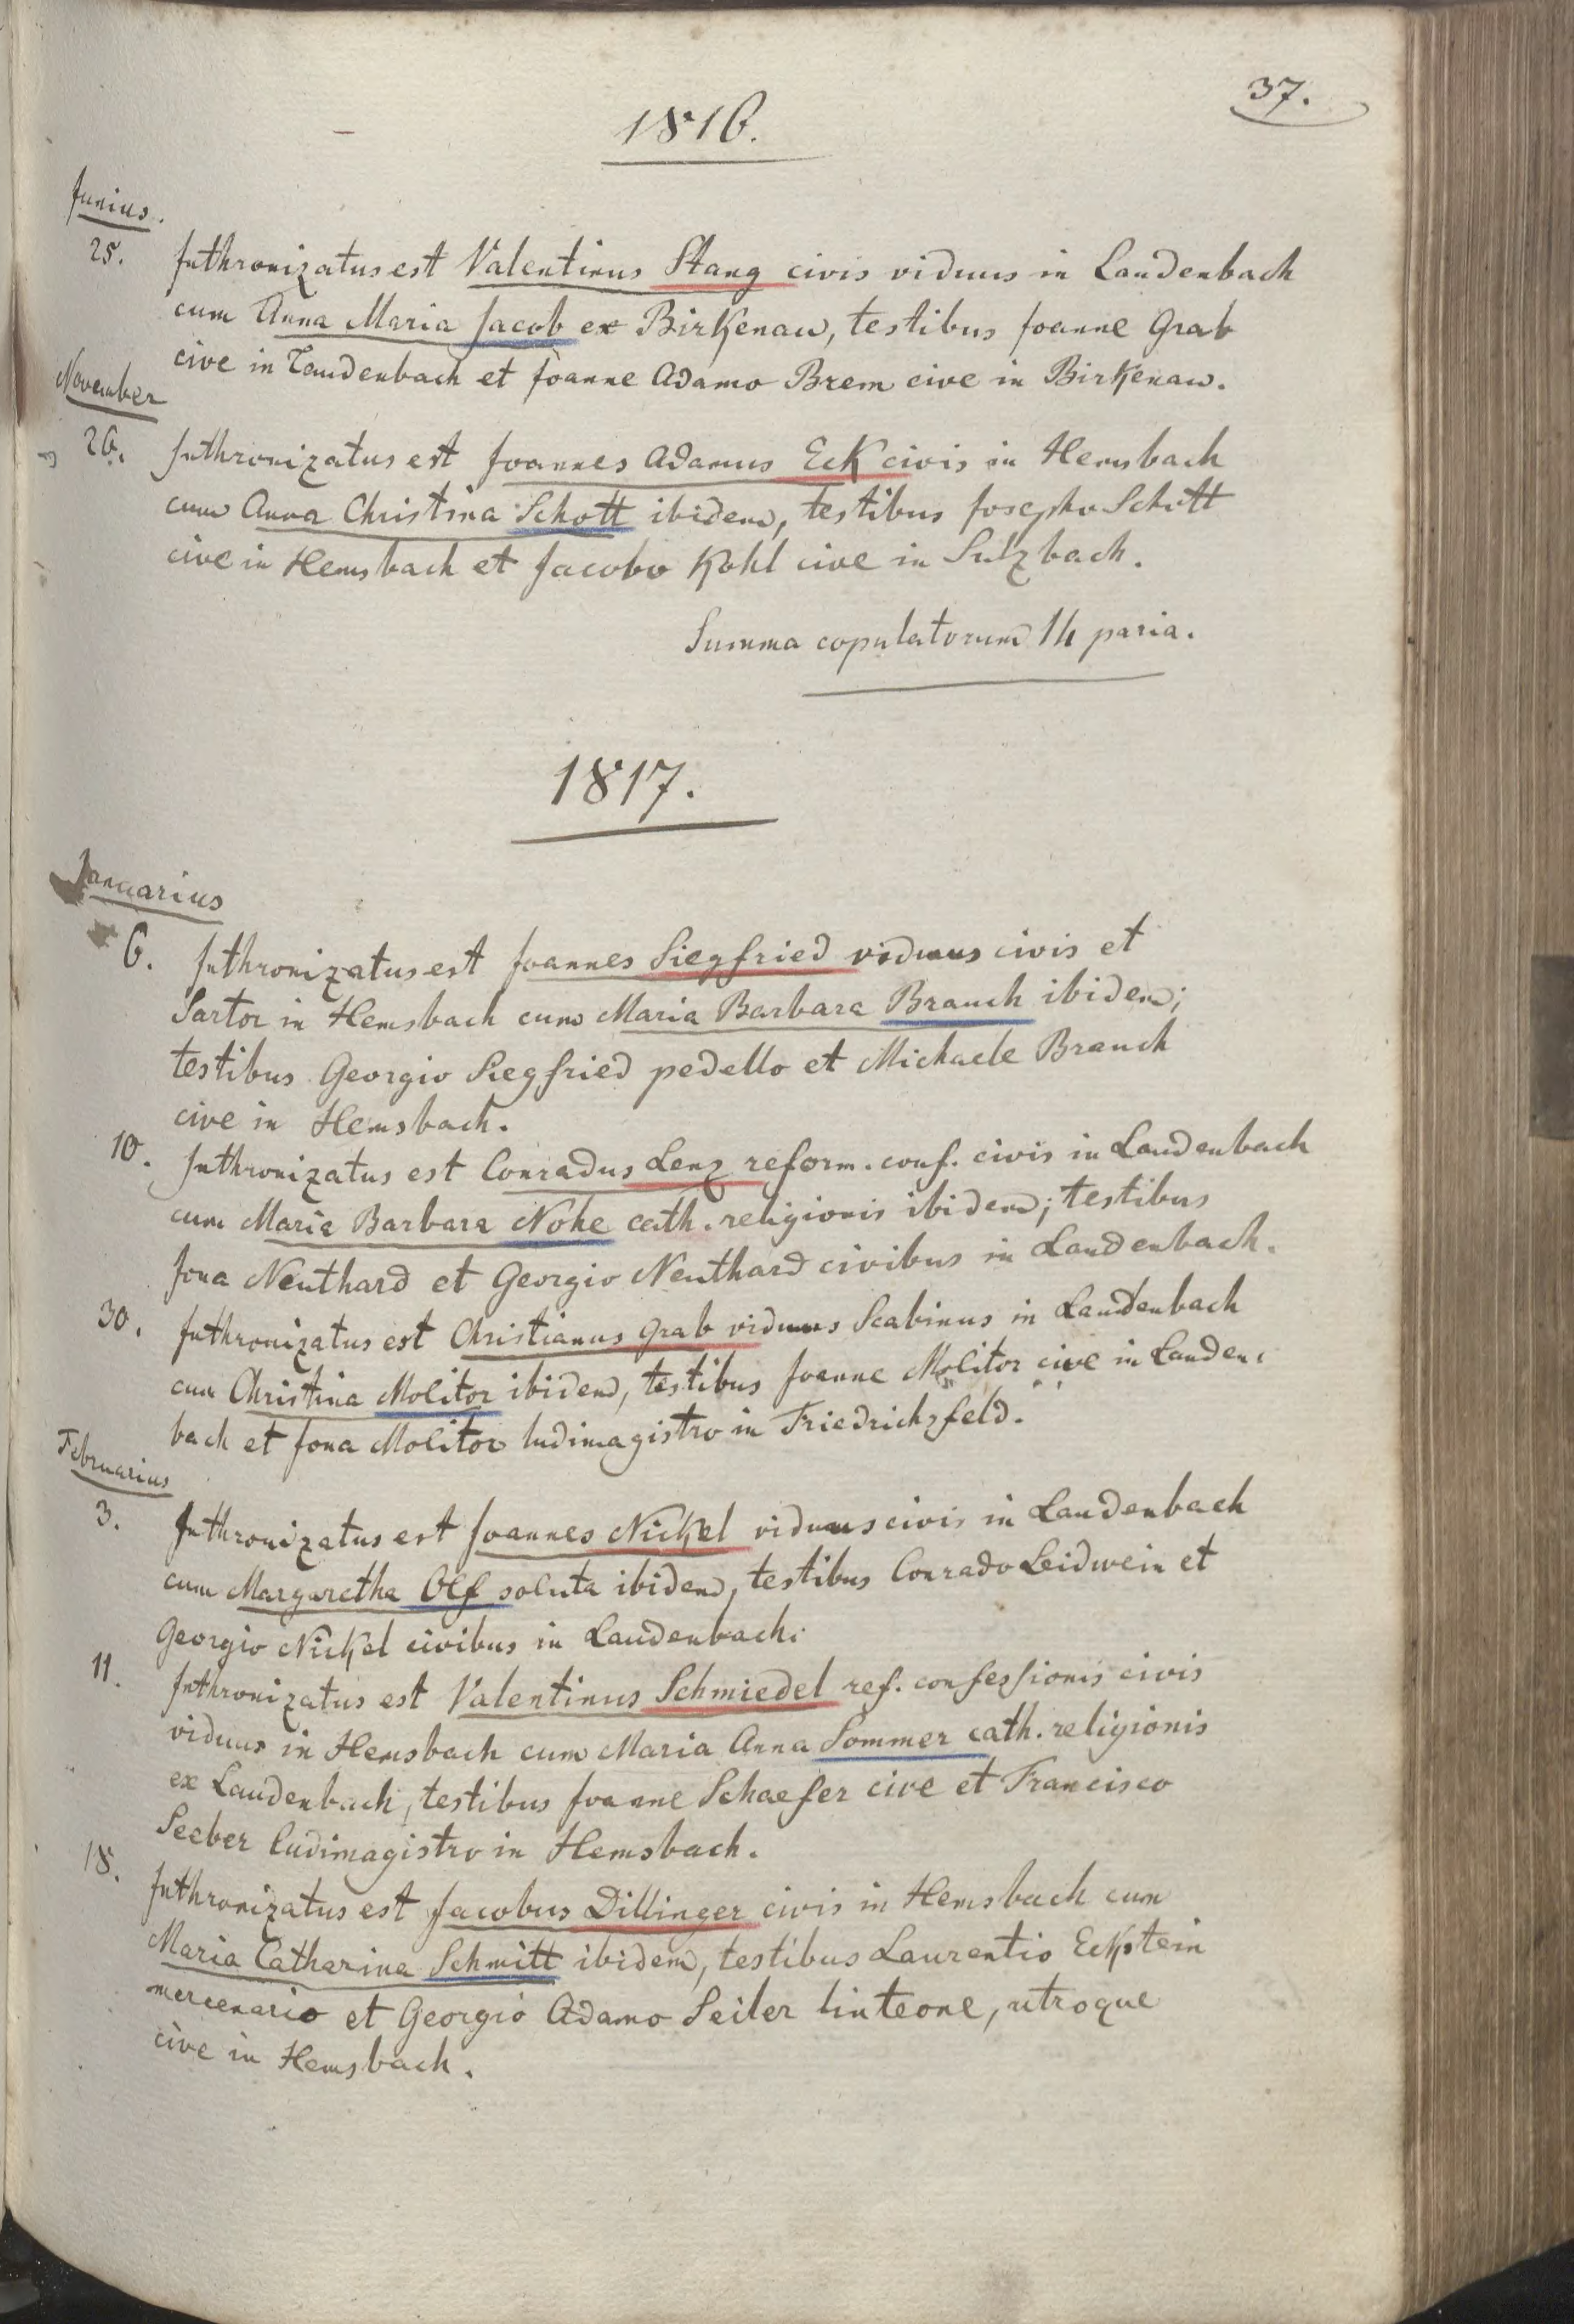 37.
1816.
Junius.
25. Inthronizatus est Valentinus Stang civis viduus in Laudenbach
cum Anna Maria Jacob ex Birkenau, testibus Joanne Grab
cive in Laudenbach et Joanne Adamo Brem cive in Birkenau.
November
26. Inthronizatus est Joannes Adamus Eck civis in Hemsbach
cum Anna Christina Schott ibidem, testibus Josepho Schott
cive in Hemsbach et Jacobo Kohl cive in Sulzbach.
Summa copulatorum 14 paria.
1817.
Januarius
6. Inthronizatus est Joannes Siegfried viduus civis et
Sartor in Hemsbach cum Maria Barbara Brauch ibidem;
testibus Georgio Siegfried pedello et Michaele Brauch
cive in Hemsbach.
10. Inthronizatus est Conradus Lenz reform. conf. civis in Laudenbach
cum Maria Barbara Nohe cath. religionis ibidem; testibus
Jona Neuthard et Georgio Neuthard civibus in Laudenbach.
30. Inthronizatus est Christianus Grab viduus Scabinus in Laudenbach
cum Christina Molitor ibidem, testibus Joanne Molitor cive in Lauden-
bach et Jona Molitor ludimagistro in Friedrichsfeld.
Februarius
3. Inthronizatus est Joannes Nickel viduus civis in Laudenbach
cum Margaretha Olf soluta ibidem, testibus Conrado Leidwein et
Georgio Nickel civibus in Laudenbach.
11. Inthronizatus est Valentinus Schmiedel ref. confessionis civis
viduus in Hemsbach cum Maria Anna Sommer cath. religionis
ex Laudenbach, testibus Joanne Schaefer cive et Francisco
Seeber ludimagistro in Hemsbach.
18. Inthronizatus est Jacobus Dillinger civis in Hemsbach cum
Maria Catharina Schmitt ibidem, testibus Laurentio Eckstein
mercenario et Georgio Adamo Seiler linteone, utroque
cive in Hemsbach.